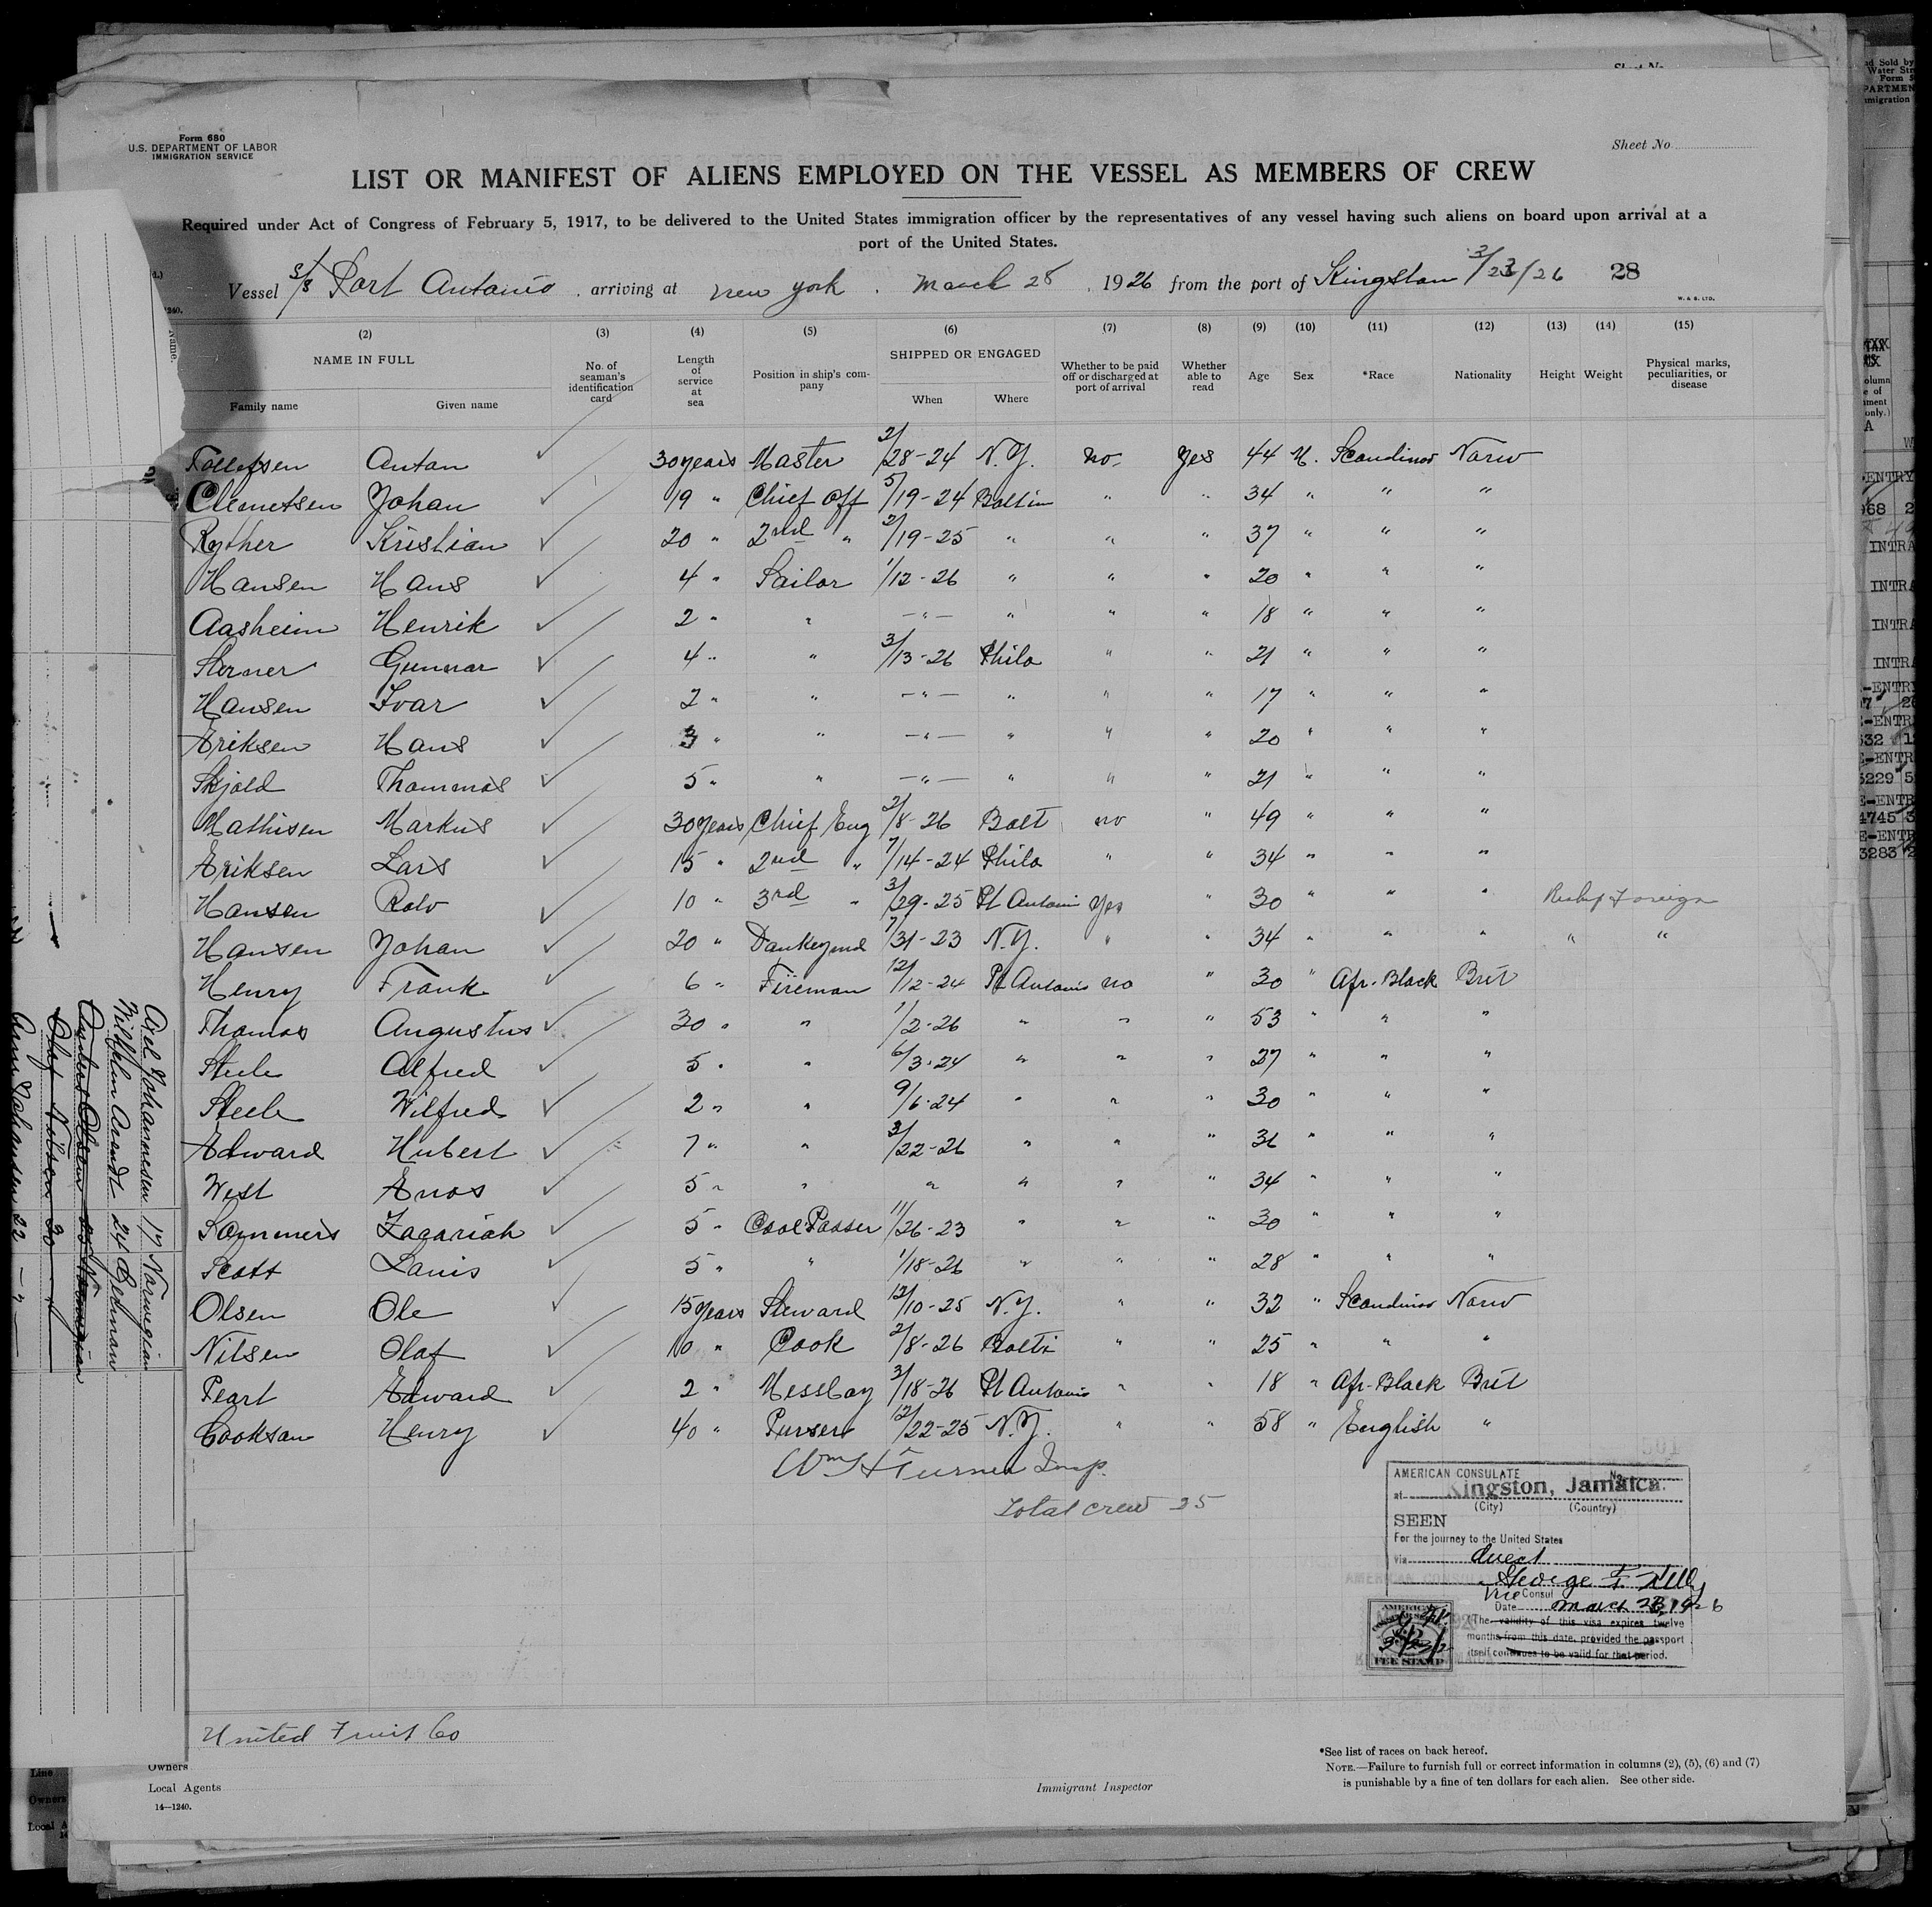 Form 680
U.S. DEPARTMENT OF LABOR
IMMIGRATION SERVICE
Sheet No
LIST OR MANIFEST OF ALIENS EMPLOYED ON THE VESSEL AS MEMBERS OF CREW
Required under Act of Congress of February 5, 1917, to be delivered to the United States immigration officer by the representatives of any vessel having such aliens on board upon arrival at a
port of the United States.
Vessel S/S Port Antonio, arriving at New York, March 28, 1926 from the port of Kingston 3/23/26 28
W. & S. LTD.
(2) (3) (4) (5) (6) (7) (8) (9) (10) (11) (12) (13) (14) (15)
NAME IN FULL No. of seaman's identification card Length of service at sea Position in ship's company SHIPPED OR ENGAGED Whether to be paid off or discharged at port of arrival Whether able to read Age Sex *Race Nationality Height Weight Physical marks, peculiarities, or disease
Family name Given name When Where
Tollefsen Anton 30 years Master 2/28-24 N.Y. no Yes 44 M. Scandinav Norw
Clemetsen Johan 19 " Chief Off 5/19-24 Baltim " " 34 " " "
Ryther Kristian 20 " 2nd " 2/19-25 " " " 37 " " "
Hansen Hans 4 " Sailor 1/12-26 " " " 20 " " "
Aasheim Henrik 2 " " —"— " " " 18 " " "
Sterner Gunnar 4 " " 3/13-26 Phila " " 21 " " "
Hansen Ivar 2 " " —"— " " " 17 " " "
Eriksen Hans 3 " " —"— " " " 20 " " "
Skjold Thommas 5 " " —"— " " " 21 " " "
Mathisen Markus 30 years Chief Eng 2/8-26 Balt no " 49 " " "
Eriksen Lars 15 " 2nd " 7/14-24 Phila " " 34 " " "
Hansen Rolv 10 " 3rd " 3/29-25 Pt Antonio Yes " 30 " " " Reship Foreign
Hansen Johan 20 " Donkeymd 7/31-23 N.Y. " " 34 " " " " "
Henry Frank 6 " Fireman 12/12-24 Pt Antonio no " 30 " Afr. Black Brit
Thomas Augustus 30 " " 1/2-26 " " " 53 " " "
Steele Alfred 5 " " 6/3-24 " " " 27 " " "
Steele Wilfred 2 " " 9/6-24 " " " 30 " " "
Edward Hubert 7 " " 3/22-26 " " " 36 " " "
West Enos 5 " " " " " " 34 " " "
Sommers Zacariah 5 " Coal Passer 11/26-23 " " " 30 " " "
Scott Louis 5 " " 1/18-26 " " " 28 " " "
Olsen Ole 15 years Steward 12/10-25 N.Y. " " 32 " Scandinav Norw
Nilsen Olaf 10 " Cook 2/8-26 Balti " " 25 " " "
Peart Edward 2 " Messboy 3/18-26 Pt Antonio " " 18 " Afr-Black Brit
Cookson Henry 40 " Purser 12/22-25 N.Y. " " 58 " English "
Wm H Turner Insp.
Total crew 25
AMERICAN CONSULATE
at Kingston, Jamaica.
(City) (Country)
SEEN
For the journey to the United States
via direct
George F. Kelly
Vice Consul
Date March 23, 1926
(The validity of this visa expires twelve
months from this date, provided the passport
itself continues to be valid for that period.
AMERICAN
FEE STAMP
United Fruit Co
Owners
Local Agents
14—1240.
Immigrant Inspector
*See list of races on back hereof.
NOTE.—Failure to furnish full or correct information in columns (2), (5), (6) and (7)
is punishable by a fine of ten dollars for each alien. See other side.
Axel Johannesen 17 Norwegian
Wilhelm Arendt 24 German
Olaf Nilsen 30
22